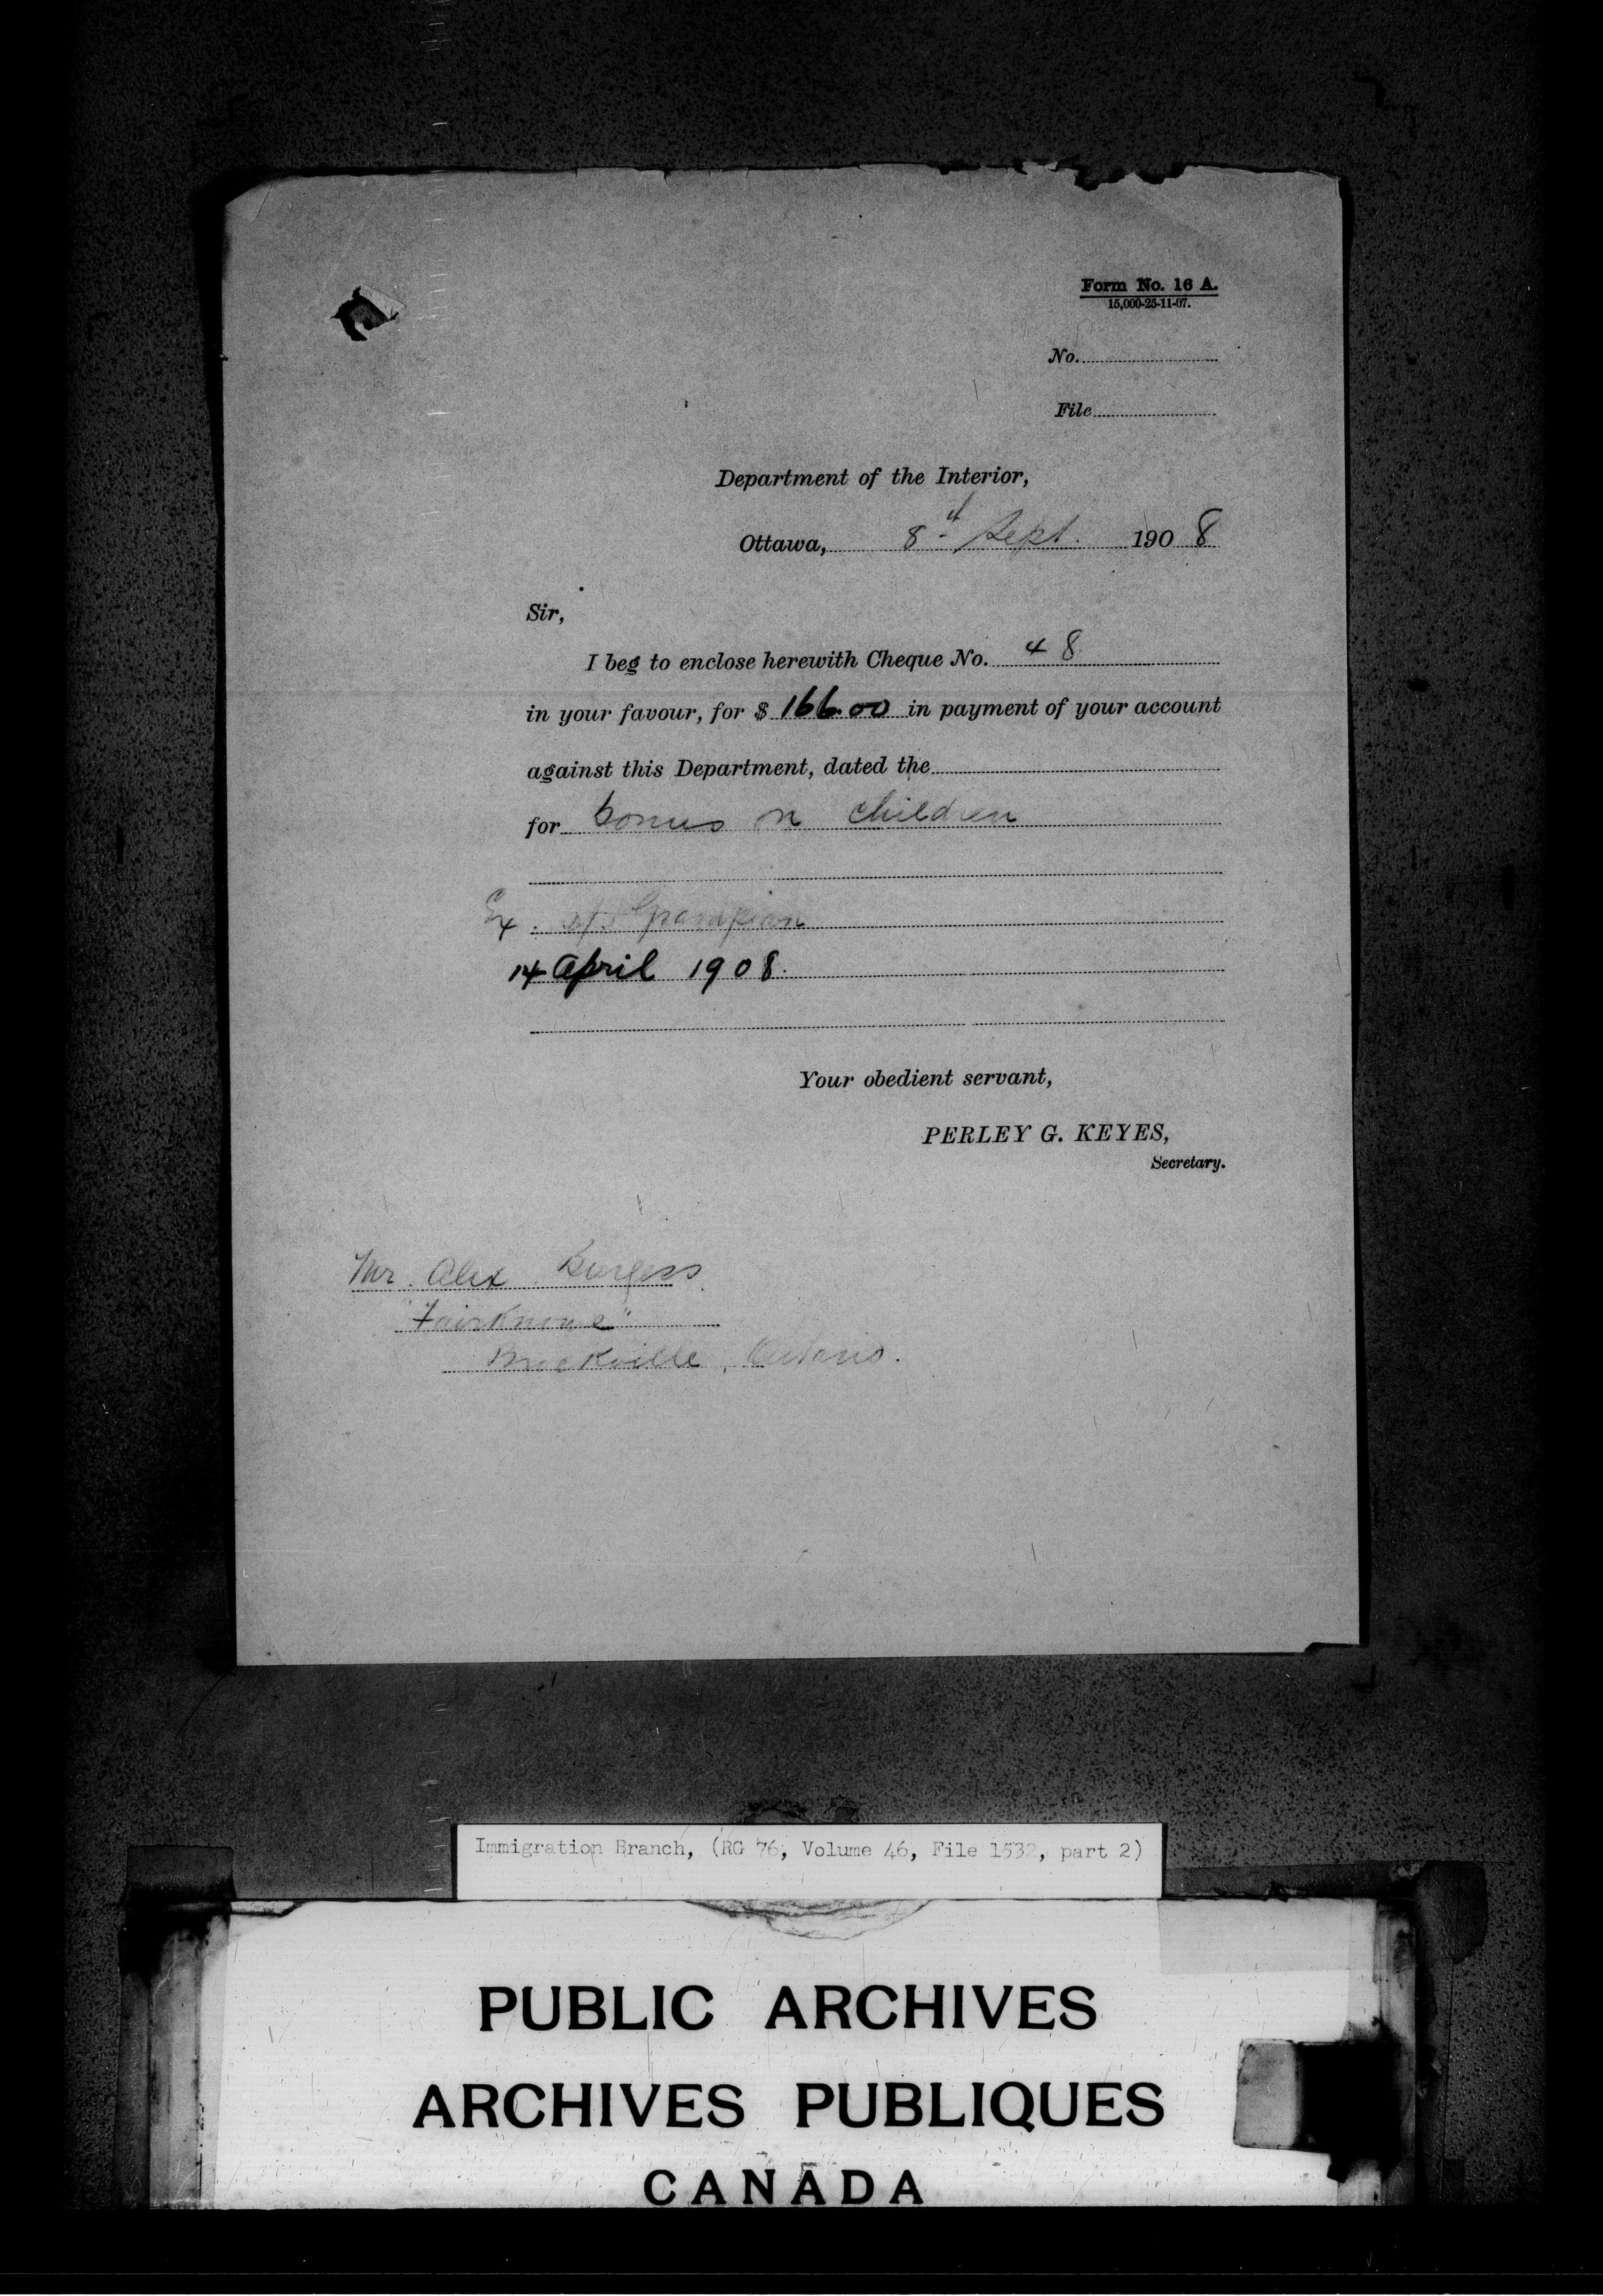 Form No. 16 A.
15,000-25-11-07.
No.
File
Department of the Interior,
Ottawa, 8th Sept. 1908
Sir,
I beg to enclose herewith Cheque No. 48
in your favour, for $ 166.00 in payment of your account
against this Department, dated the
for bonus on children
Ex. s/s Grampian
14 April 1908.
Your obedient servant,
PERLEY G. KEYES,
Secretary.
Mr. Alex Burgess
"Fairknowe"
Brockville, Ontario.
Immigration Branch, (RG 76, Volume 46, File 1532, part 2)
PUBLIC ARCHIVES
ARCHIVES PUBLIQUES
CANADA